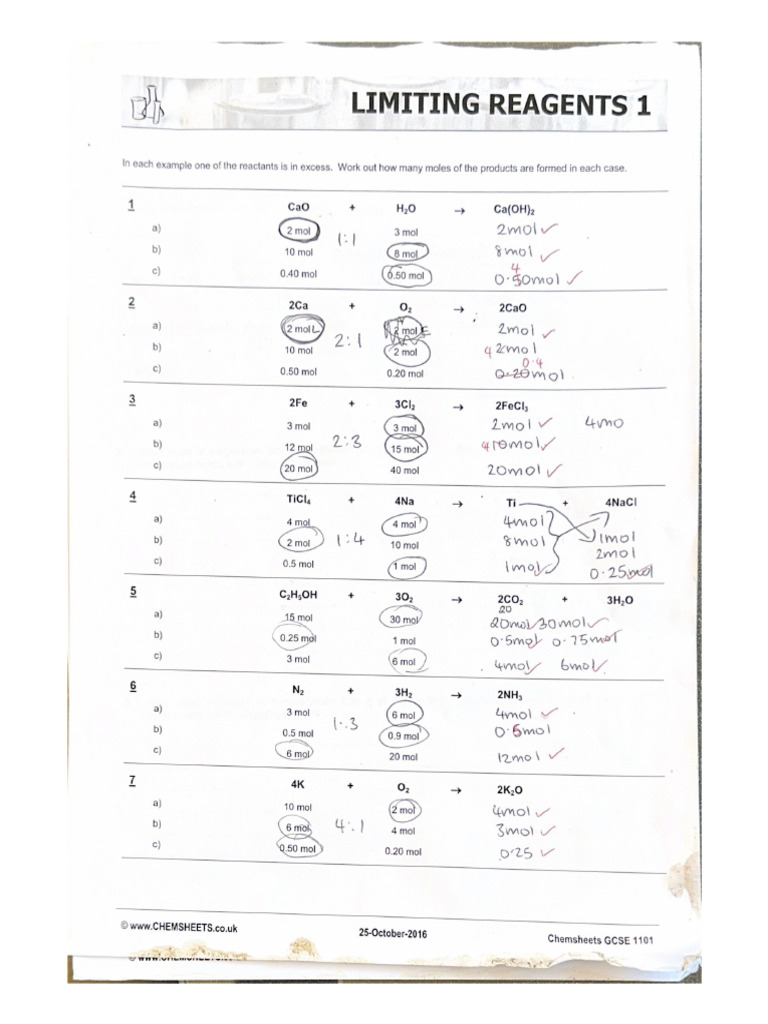 LIMITING REAGENTS 1
In each example one of the reactants is in excess. Work out how many moles of the products are formed in each case.
1 CaO + H₂O → Ca(OH)₂
a) 2 mol 3 mol 2mol ✓
1:1
b) 10 mol 8 mol 8mol ✓
4
c) 0.40 mol 0.50 mol 0.50mol ✓
2 2Ca + O₂ → 2CaO
a) 2 mol L 2 mol E 2mol ✓
2:1
b) 10 mol 2 mol 4 2mol
0.4
c) 0.50 mol 0.20 mol 0.20mol
3 2Fe + 3Cl₂ → 2FeCl₃
a) 3 mol 3 mol 2mol ✓ 4mo
b) 12 mol 2:3 15 mol 4 10mol ✓
c) 20 mol 40 mol 20mol ✓
4 TiCl₄ + 4Na → Ti + 4NaCl
a) 4 mol 4 mol 4mol 1mol
b) 2 mol 1:4 10 mol 8mol 2mol
c) 0.5 mol 1 mol 1mol 0.25mol
5 C₂H₅OH + 3O₂ → 2CO₂ + 3H₂O
20
a) 15 mol 30 mol 20mol 30mol ✓
b) 0.25 mol 1 mol 0.5mol 0.75mol
c) 3 mol 6 mol 4mol ✓ 6mol ✓
6 N₂ + 3H₂ → 2NH₃
a) 3 mol 6 mol 4mol ✓
1:3
b) 0.5 mol 0.9 mol 0.6mol
c) 6 mol 20 mol 12mol ✓
7 4K + O₂ → 2K₂O
a) 10 mol 2 mol 4mol ✓
b) 6 mol 4:1 4 mol 3mol ✓
c) 0.50 mol 0.20 mol 0.25 ✓
© www.CHEMSHEETS.co.uk 25-October-2016 Chemsheets GCSE 1101